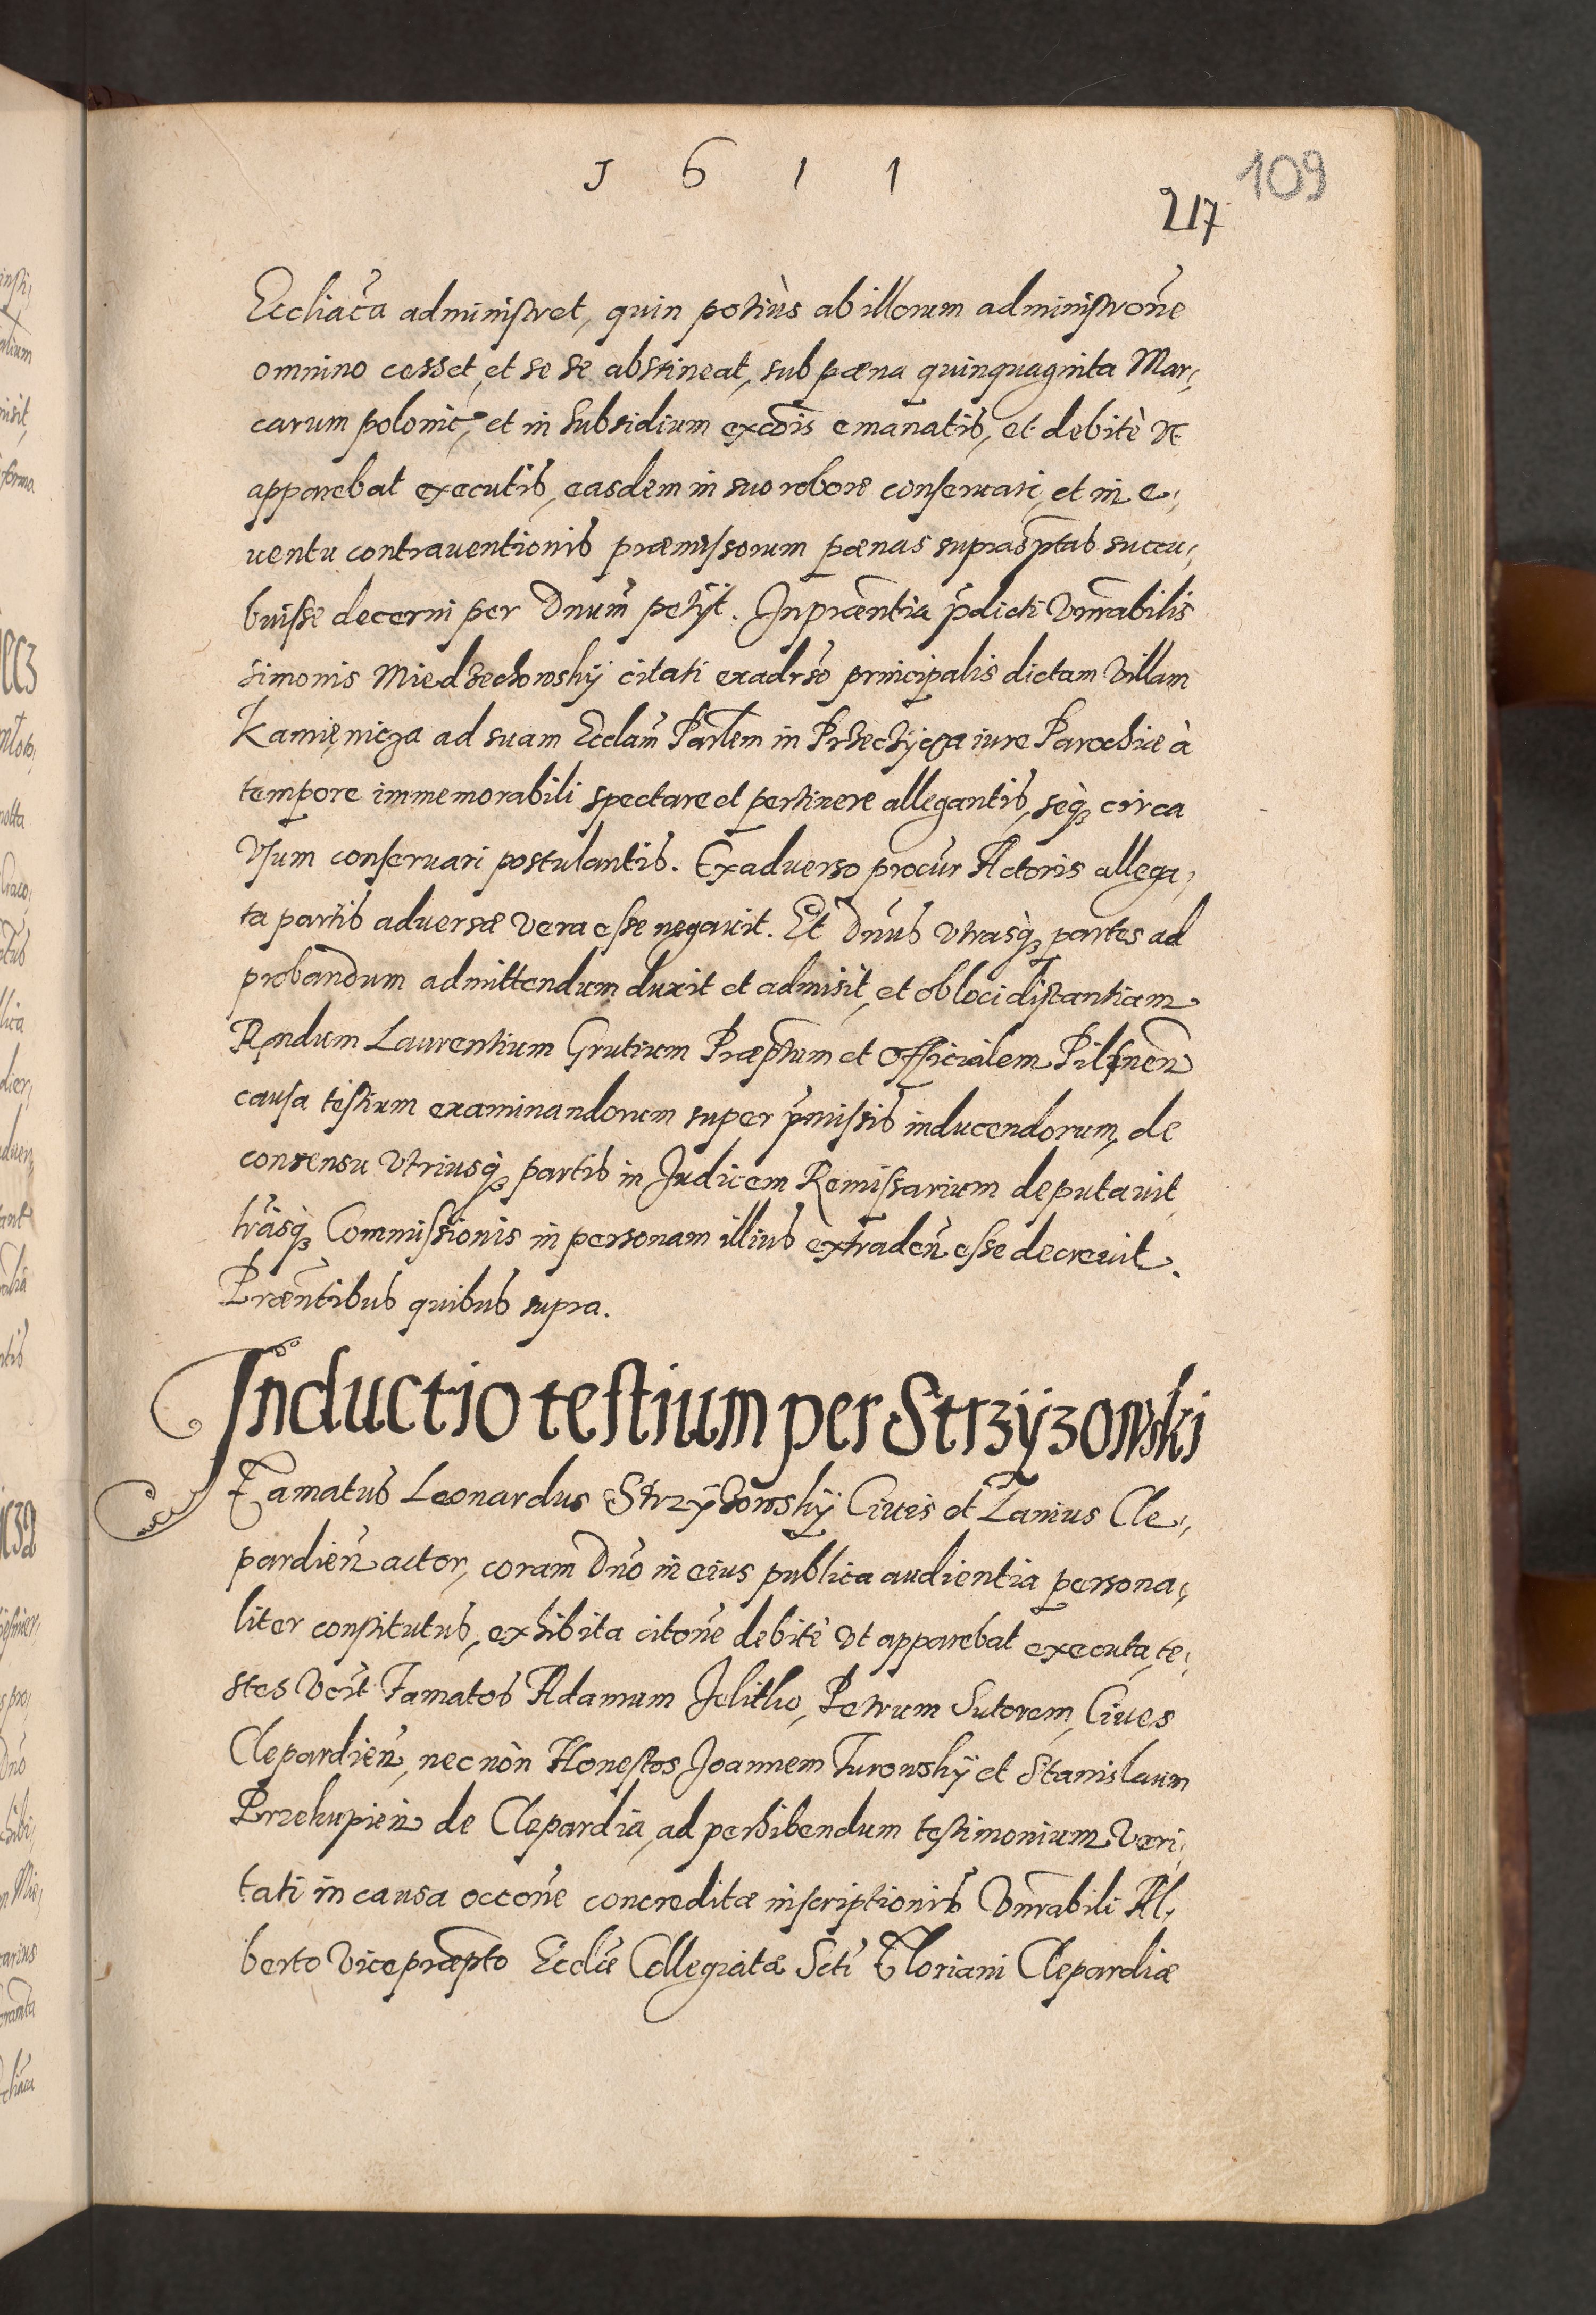 1 6 1 1
109
217
Eccliaca administret, quin potiùs ab illorum administrone
omnino cesset, et se se abstineat, sub pæna quinquaginta Mar,
carum polonic, et in subsidium excois emanatis, et debitè vt
apparebat executis, easdem in suo robore conseruari, et in e,
uentu contrauentionis præmissorum pænas suprasptas succu,
buisse decerni per Dnum petÿt. In præntia pdicti Vnrabilis
Simonis Miedzechowskÿ citati exadrso principalis dictam Villam
Kamięnicza ad suam Ecclam Parlem in Przeczÿcza iure Parochiæ à
tempore immemorabili spectare et pertinere allegantis, seq circa
Vsum conseruari postulantis. Exaduerso procur Actoris allega,
ta partis aduersæ Vera esse negauit. Et Dnus Vtrasq partes ad
probandum admittendum duxit et admisit, et ob loci distantiam
Rndum Laurentium Grutium Præptum et Officialem Pilsnen
causa testium examinandorum super pmissis inducendorum, de
consensu Vtriusq partis in Judicem Remissarium deputauit,
trasq Commissionis in personam illius extraden esse decreuit.
Præntibus quibus supra.
Inductio testium per Strzÿzowski
Famatus Leonardus Strzÿzowskÿ Ciuis et Lanius Cle,
pardien actor, coram Dno in eius publica audientia persona,
liter constitutus, exhibita citone debitè Vt apparebat executa, te,
stes Vert Famatos Adamum Jelitko, Petrum Sutorem, Ciues
Clepardien, nec nòn Honestos Joannem Turowskÿ et Stanislaum
Przekupien de Clepardia, ad perhibendum testimonium Veri,
tati in causa occone concreditæ inscriptionis Vnrabili Al,
berto Vicepræpto Ecclæ Collegiatæ Scti Floriani Clepardiæ